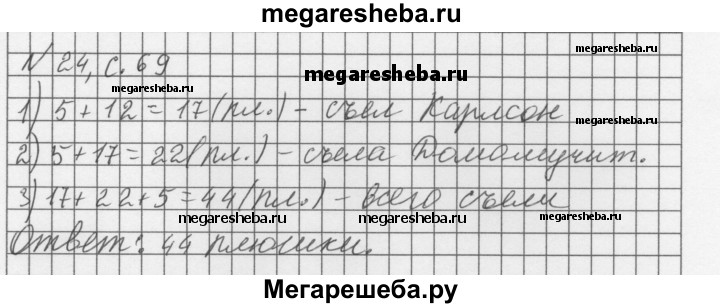 megaresheba.ru
N 24, с. 69
megaresheba.ru
megaresheba.ru
megaresheba.ru
1) 5 + 12 = 17 (пл.) - съел Карлсон
2) 5 + 17 = 22 (пл.) - съела Домомучит.
3) 17 + 22 + 5 = 44 (пл.) - всего съели
megaresheba.ru megaresheba.ru megaresheba.ru
Ответ: 44 плюшки.
Мегарешеба.ру